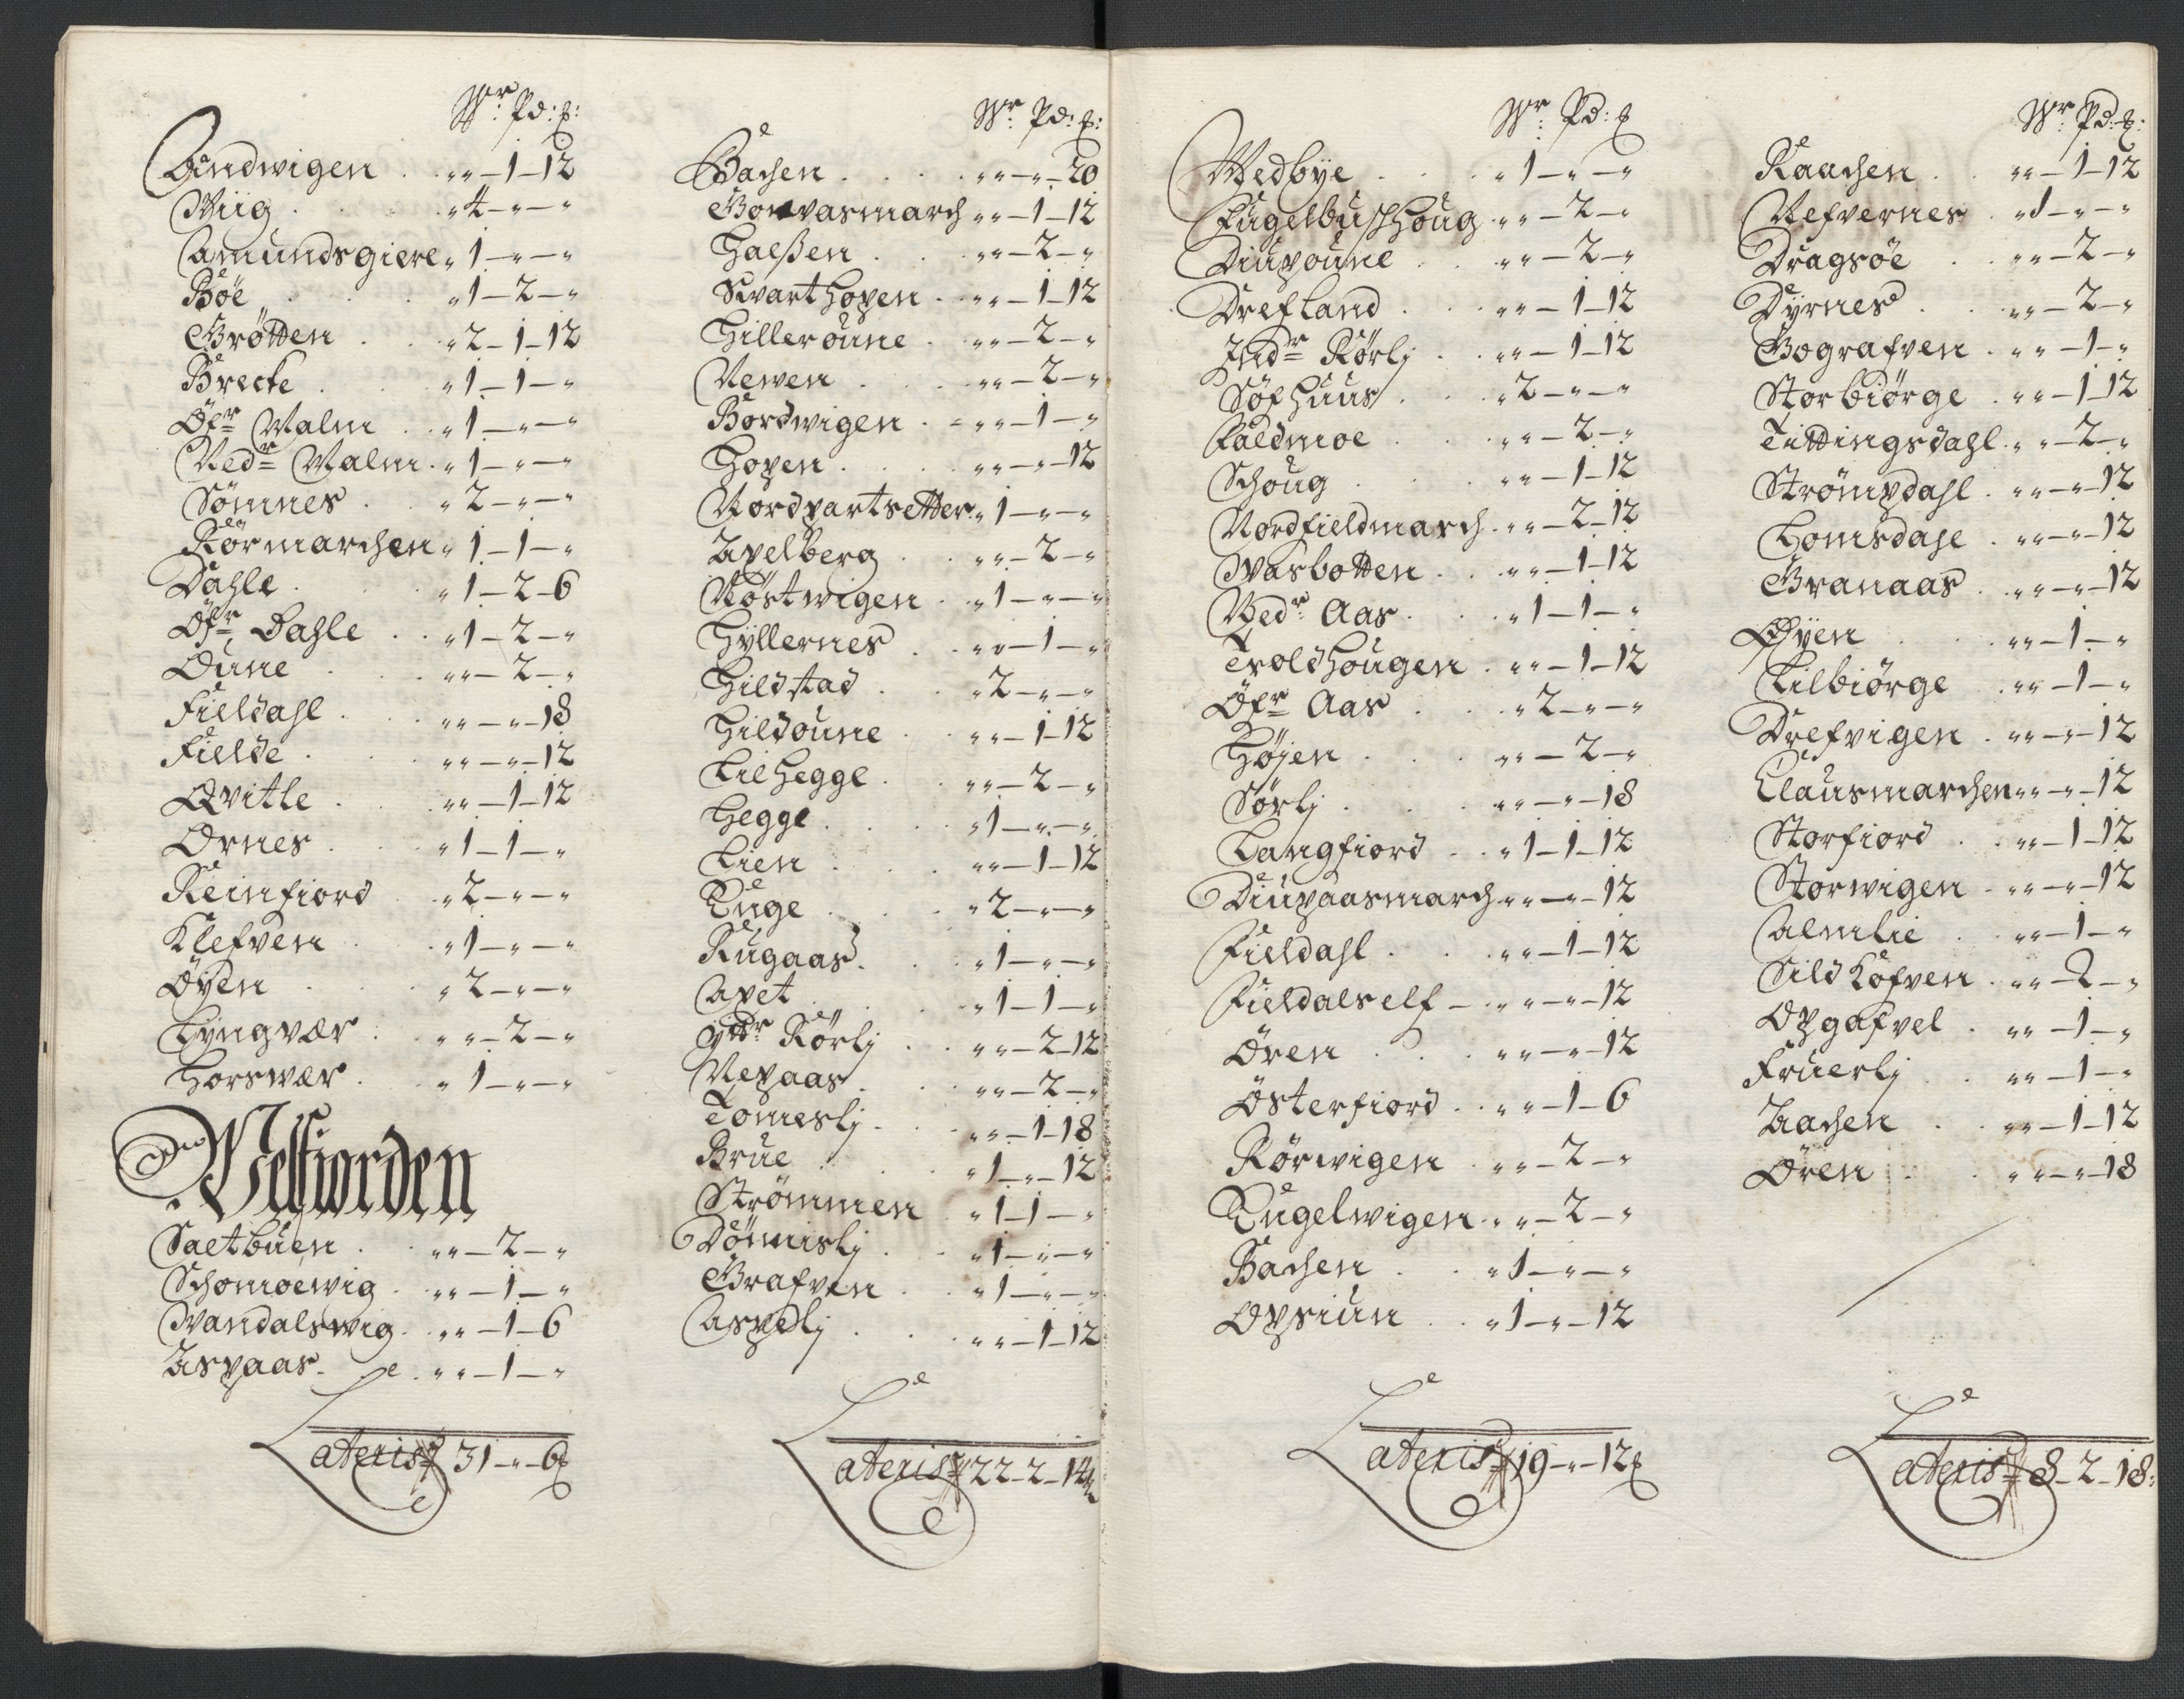 Wr: Pd: ℔:
Andwigen . „ „ – 1 – 12
Wiig . . „ 4 – „ – „
Amundsgiere „ 1 – „ – „
Böe . . „ 1 – 2 – „
Grötten . . „ 2 – 1 – 12
Brecke . . „ 1 – 1 – „
Öfr Walm . „ 1 – „ – „
Nedr Walm . „ 1 – „ – „
Sömnes . . „ 2 – „ – „
Rörmarchen „ 1 – 1 – „
Dahle . . „ 1 – 2 – 6
Öfr Dahle . . „ 1 – 2 – „
Oune . . „ „ – 2 – „
Fieldahl . . „ „ – „ – 18
Fielde . . „ „ – „ – 12
Qvitle . . „ „ – 1 – 12
Ornes . . „ 1 – 1 – „
Reinfiord . „ 2 – „ – „
Klefven . . „ 1 – „ – „
Öyen . . „ 2 – „ – „
Lyngvær . „ „ – 2 – „
Horswær . „ 1 – „ – „
Velfiorden
Saetbuen . „ „ – 2 – „
Schomoewig . „ „ – 1 – „
Wandalswig . „ „ – 1 – 6
Aspaas . „ „ – 1 – „
Lateris 31 – „ – 6 ℔
Wr: Pd: ℔:
Bachen . . „ „ – „ – 20
Gorvasmarch „ „ – 1 – 12
Haelßen . . „ „ – 2 – „
Swarthopen . „ „ – 1 – 12
Hilleroune . „ „ – 2 – „
Newen . . „ „ – 2 – „
Bordwigen . „ „ – 1 – „
Hopen . . „ „ – „ – 12
Nordpartsetter „ 1 – „ – „
Axelberg . „ „ – 2 – „
Nöstwigen . „ 1 – „ – „
Hyllernes . „ „ – 1 – „
Hildstad . „ 2 – „ – „
Hildoune . „ „ – 1 – 12
Lilhegge . „ „ – 2 – „
Hegge . . „ 1 – „ – „
Lien . . „ „ – 1 – 12
Enge . . „ 2 – „ – „
Rugaas . . „ 1 – „ – „
Apet . . „ 1 – 1 – „
Yttr Rörlj . . „ „ – 2 – 12
Nepaas . . „ „ – 2 – „
Tomeslj . . „ „ – 1 – 18
Brue . . „ 1 – „ – 12
Strömmen „ 1 – 1 – „
Dömislj . . „ 1 – „ – „
Grafven . . „ 1 – „ – „
Aspelj . . „ „ – 1 – 12
Lateris 22 – 2 – 14
Wr: Pd: ℔
Medbye . . „ 1 – „ – „
Fugelbuschhoug . „ „ – 2 – „
Diupoune . . „ „ – 2 – „
Drefland . . „ „ – 1 – 12
Indr Rörlj . . „ „ – 1 – 12
Söfhuus . . „ 2 – „ – „
Faldmoe . . „ „ – 2 – „
Schoug . . „ „ – 1 – 12
Nordfieldmarch . „ „ – 2 – 12
Wasbotten . . „ „ – 1 – 12
Nedr Aas . . „ 1 – 1 – „
Troldhougen . „ „ – 1 – 12
Öfr Aas . . „ 2 – „ – „
Höjen . . „ „ – 2 – „
Sörlj . . „ „ – „ – 18
Langfiord . . „ 1 – 1 – 12
Diupaasmarch „ „ – „ – 12
Fieldahl . . „ „ – 1 – 12
Fieldalself – „ „ – „ – 12
Ören . . „ „ – „ – 12
Österfiord . . „ „ – 1 – 6
Rörwigen . „ „ – 2 – „
Engelwigen . „ „ – 2 – „
Bachen . . „ 1 – „ – „
Opsiun . . „ 1 – „ – 12
Lateris 19 – „ – 12 ℔
Wr: Pd: ℔:
Raachen . . „ „ – 1 – 12
Nefvernes . „ 1 – „ – „
Dragsöe . . „ „ – 2 – „
Dyrnes . . „ „ – 2 – „
Bografven . „ „ – 1 – „
Storbiörge . „ „ – 1 – 12
Tittingsdahl . „ „ – 2 – „
Strömpdahl . „ „ – „ – 12
Lomsdahl . „ „ – „ – 12
Granaas . „ „ – „ – 12
Öyen . . „ „ – 1 – „
Lilbiörge . „ „ – 1 – „
Drefvigen . „ „ – „ – 12
Clausmarchen „ „ – „ – 12
Storfiord . . „ „ – 1 – 12
Storwigen . „ „ – „ – 12
Almlie . „ „ – 1 – „
Sildhofven . „ „ – 2 – „
Opgafvel . „ „ – 1 – „
Fruerlj . . „ „ – 1 – „
Aachen . . „ „ – 1 – 12
Ören . . „ „ – „ – 18
Lateris 8 – 2 – 18: